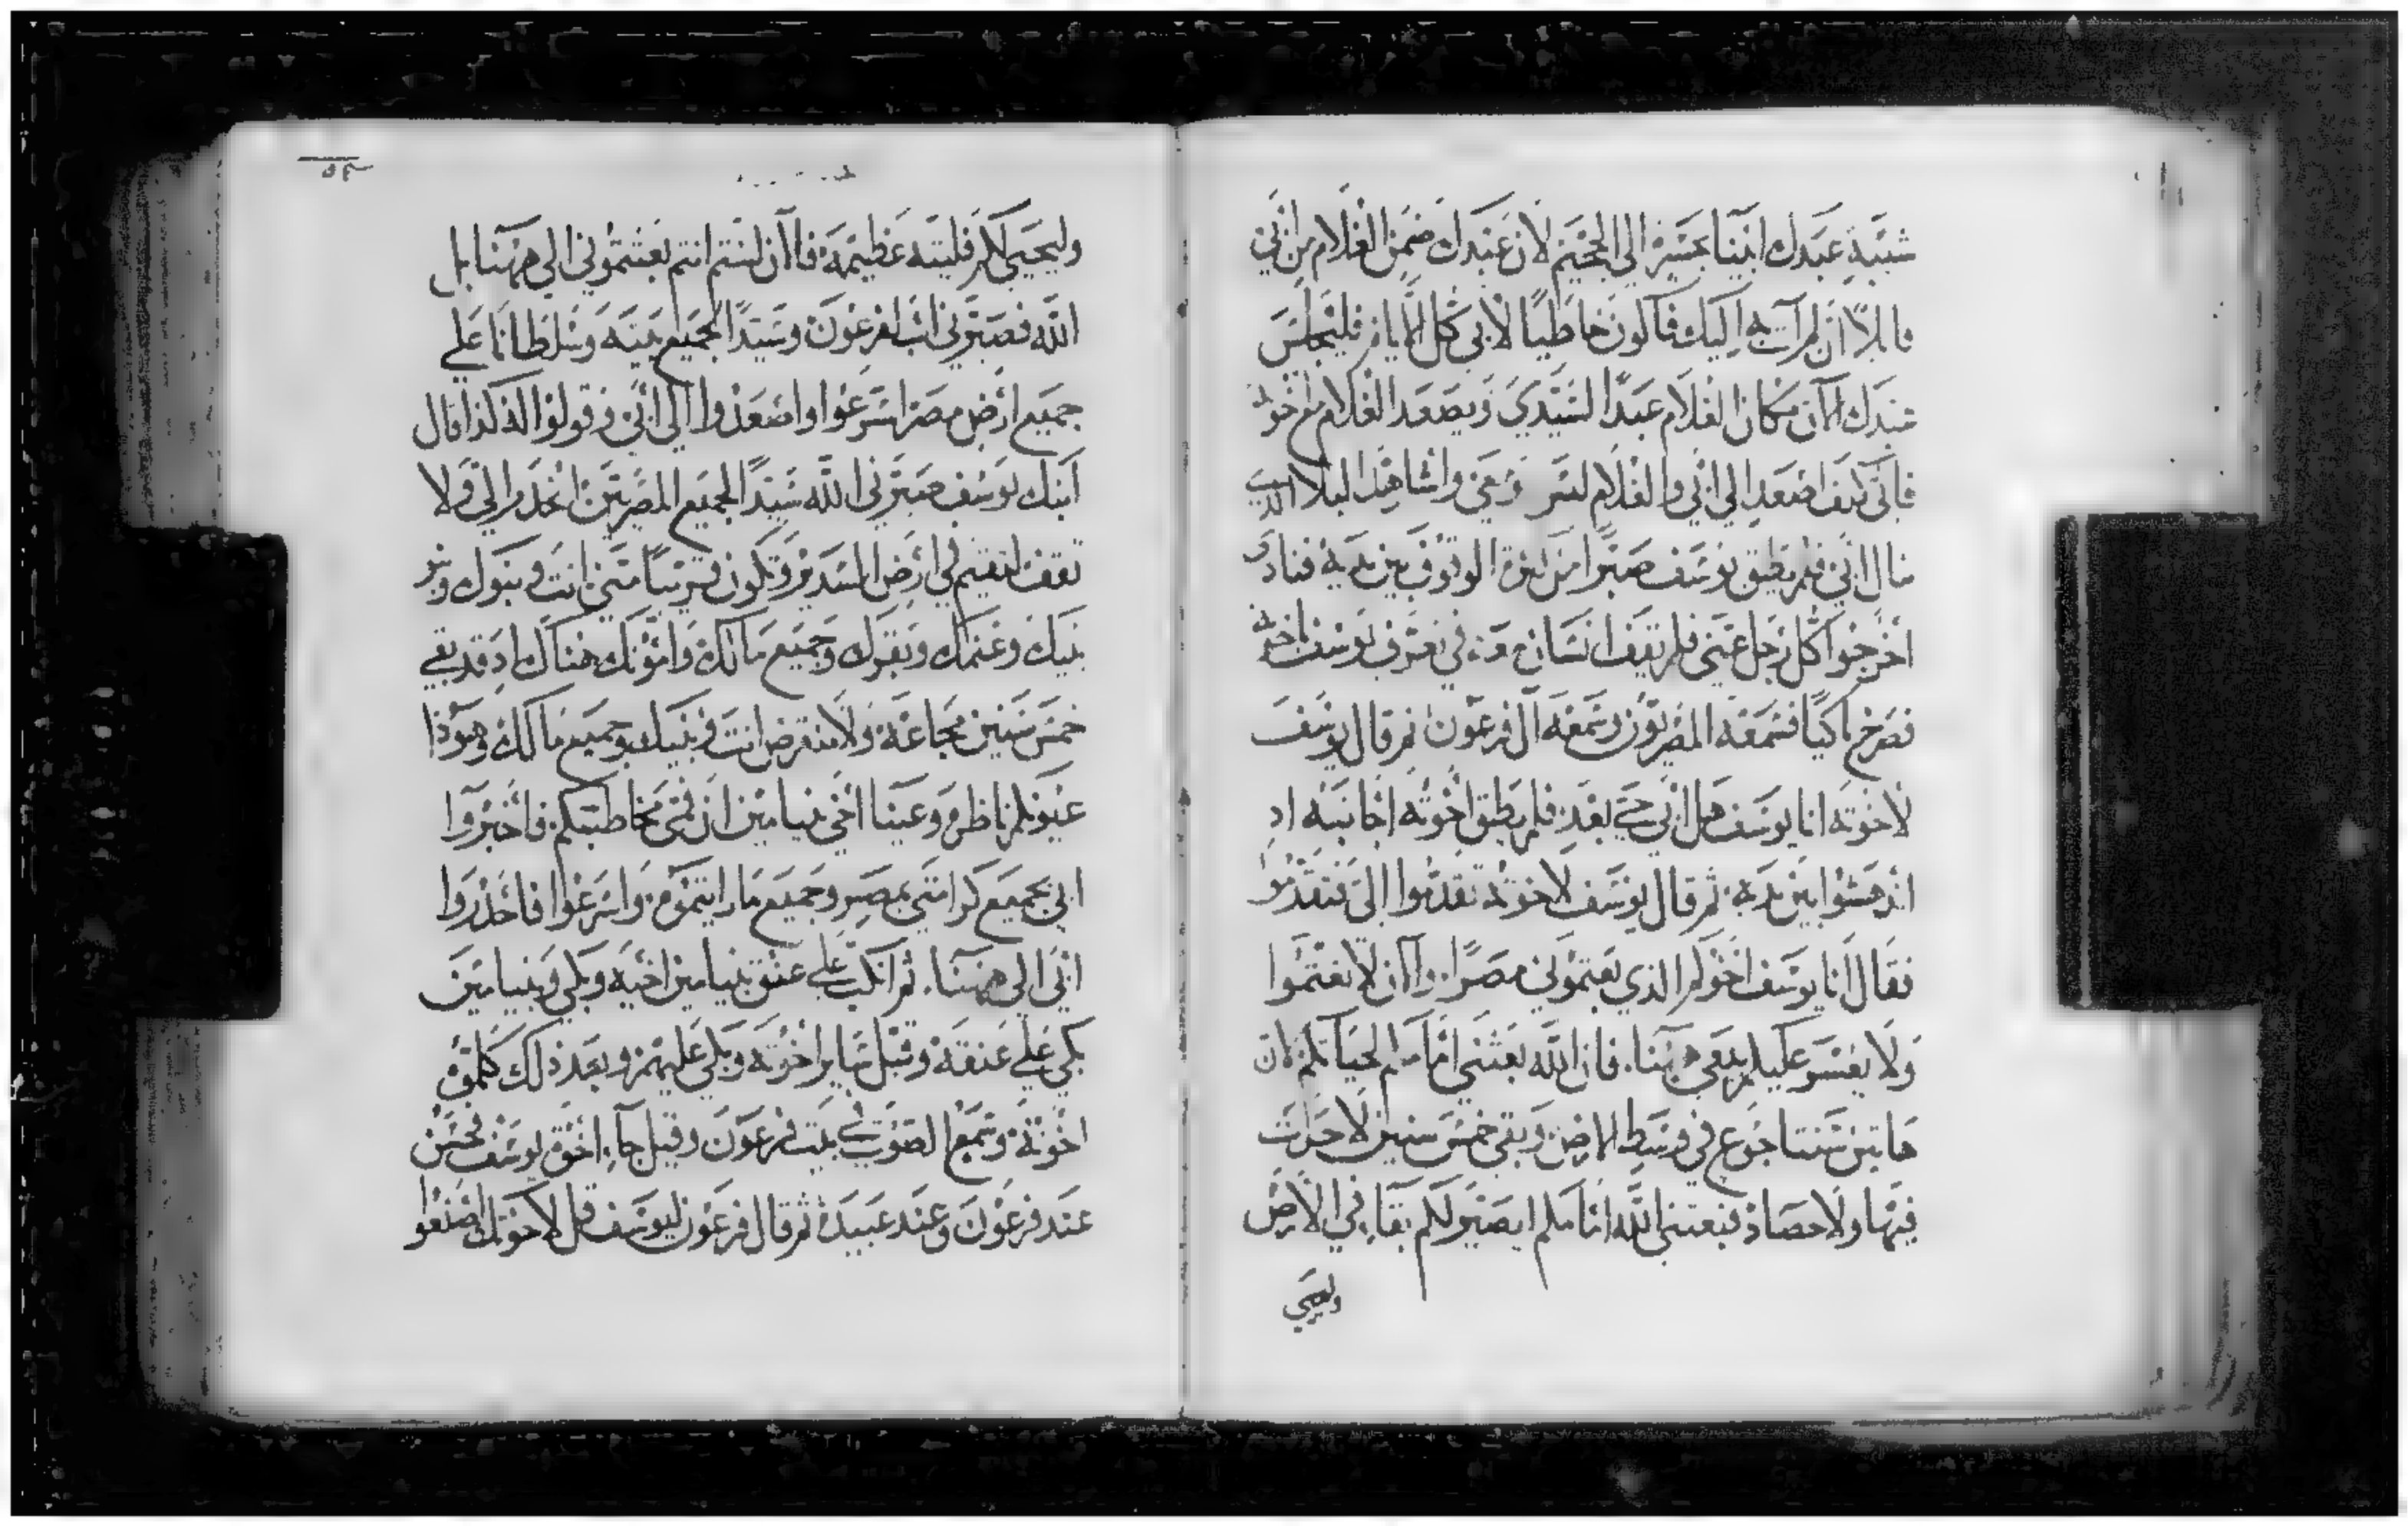 شيبة عبدك ابينا بحسرة الي الجحيم لان عبدك ضمن الغلام من ابي
قايلا ان لم آت به اليك فاكون خاطيًا لابي كل الايام فليجلس
عبدك الآن مكان الغلام عبدًا لسيدي ويصعد الغلام مع اخوته
فاني كيف اصعد الي ابي والغلام ليس هو معي واشاهد البلا الذي
ينال ابي فلم يطيق يوسف صبرًا من كثرة الوقوف بين يديه فنادي
اخرجوا كل رجل عني فلم يقف انسان معه في تعرف يوسف باخوته
فصرخ باكيًا فسمعه المصريون وسمعه آل فرعون ثم قال يوسف
لاخوته انا يوسف هل ابي حي بعد فلم يطق اخوته اجابته اد
اندهشوا بين يديه ثم قال يوسف لاخوته تقدموا الي فتقدموا
فقال انا يوسف اخوكم الذي بعتموني مصرًا والان لا تغتموا
ولا يعسر عليكم بيعي ههنا فان الله بعثني امامكم لحياتكم لان
هاتين سنتا جوع في وسط الارض وبقي خمس سنين لا حرات
فيها ولا حصاد فبعتني الله امامكم ليصير لكم بقاء في الارض
وليحيي
وليحيي لكم فليته عظيمة فالآن لستم انتم بعتموني الي ههنا بل
الله فصيرني اب لفرعون وسيدًا لجميع بيته وسلطانا علي
جميع ارض مصر اسرعوا واصعدوا الي ابي وقولوا له كذا قال
ابنك يوسف صيرني الله سيدًا لجميع المصريين انحدر الي ولا
تقف لتقيم في ارض السدير وتكون قريبًا مني انت وبنوك وبنو
بنيك وغنمك وبقرك وجميع مالك وامونك هناك اد قد بقي
خمس سنين مجاعة ولا ينقرض انت وبنيك وجميع مالك وهوذا
عيونكم ناظره وعينا اخي بنيامين ان فمي مخاطبكم فاخبروا
ابي بجميع كرامتي بمصر وجميع ما رايتموه واسرعوا فاحدروا
ابي الي ههنا ثم انكب علي عنق بنيامين اخيه وبكي وبنيامين
بكي علي عنقه وقبل ساير اخوته وبكي عليهم وبعد ذلك كلموه
اخوته وسمع الصوت في بيت فرعون وقيل جاء اخوة يوسف فحسن
عند فرعون وعند عبيده ثم قال فرعون ليوسف قل لاخوتك اصنعوا